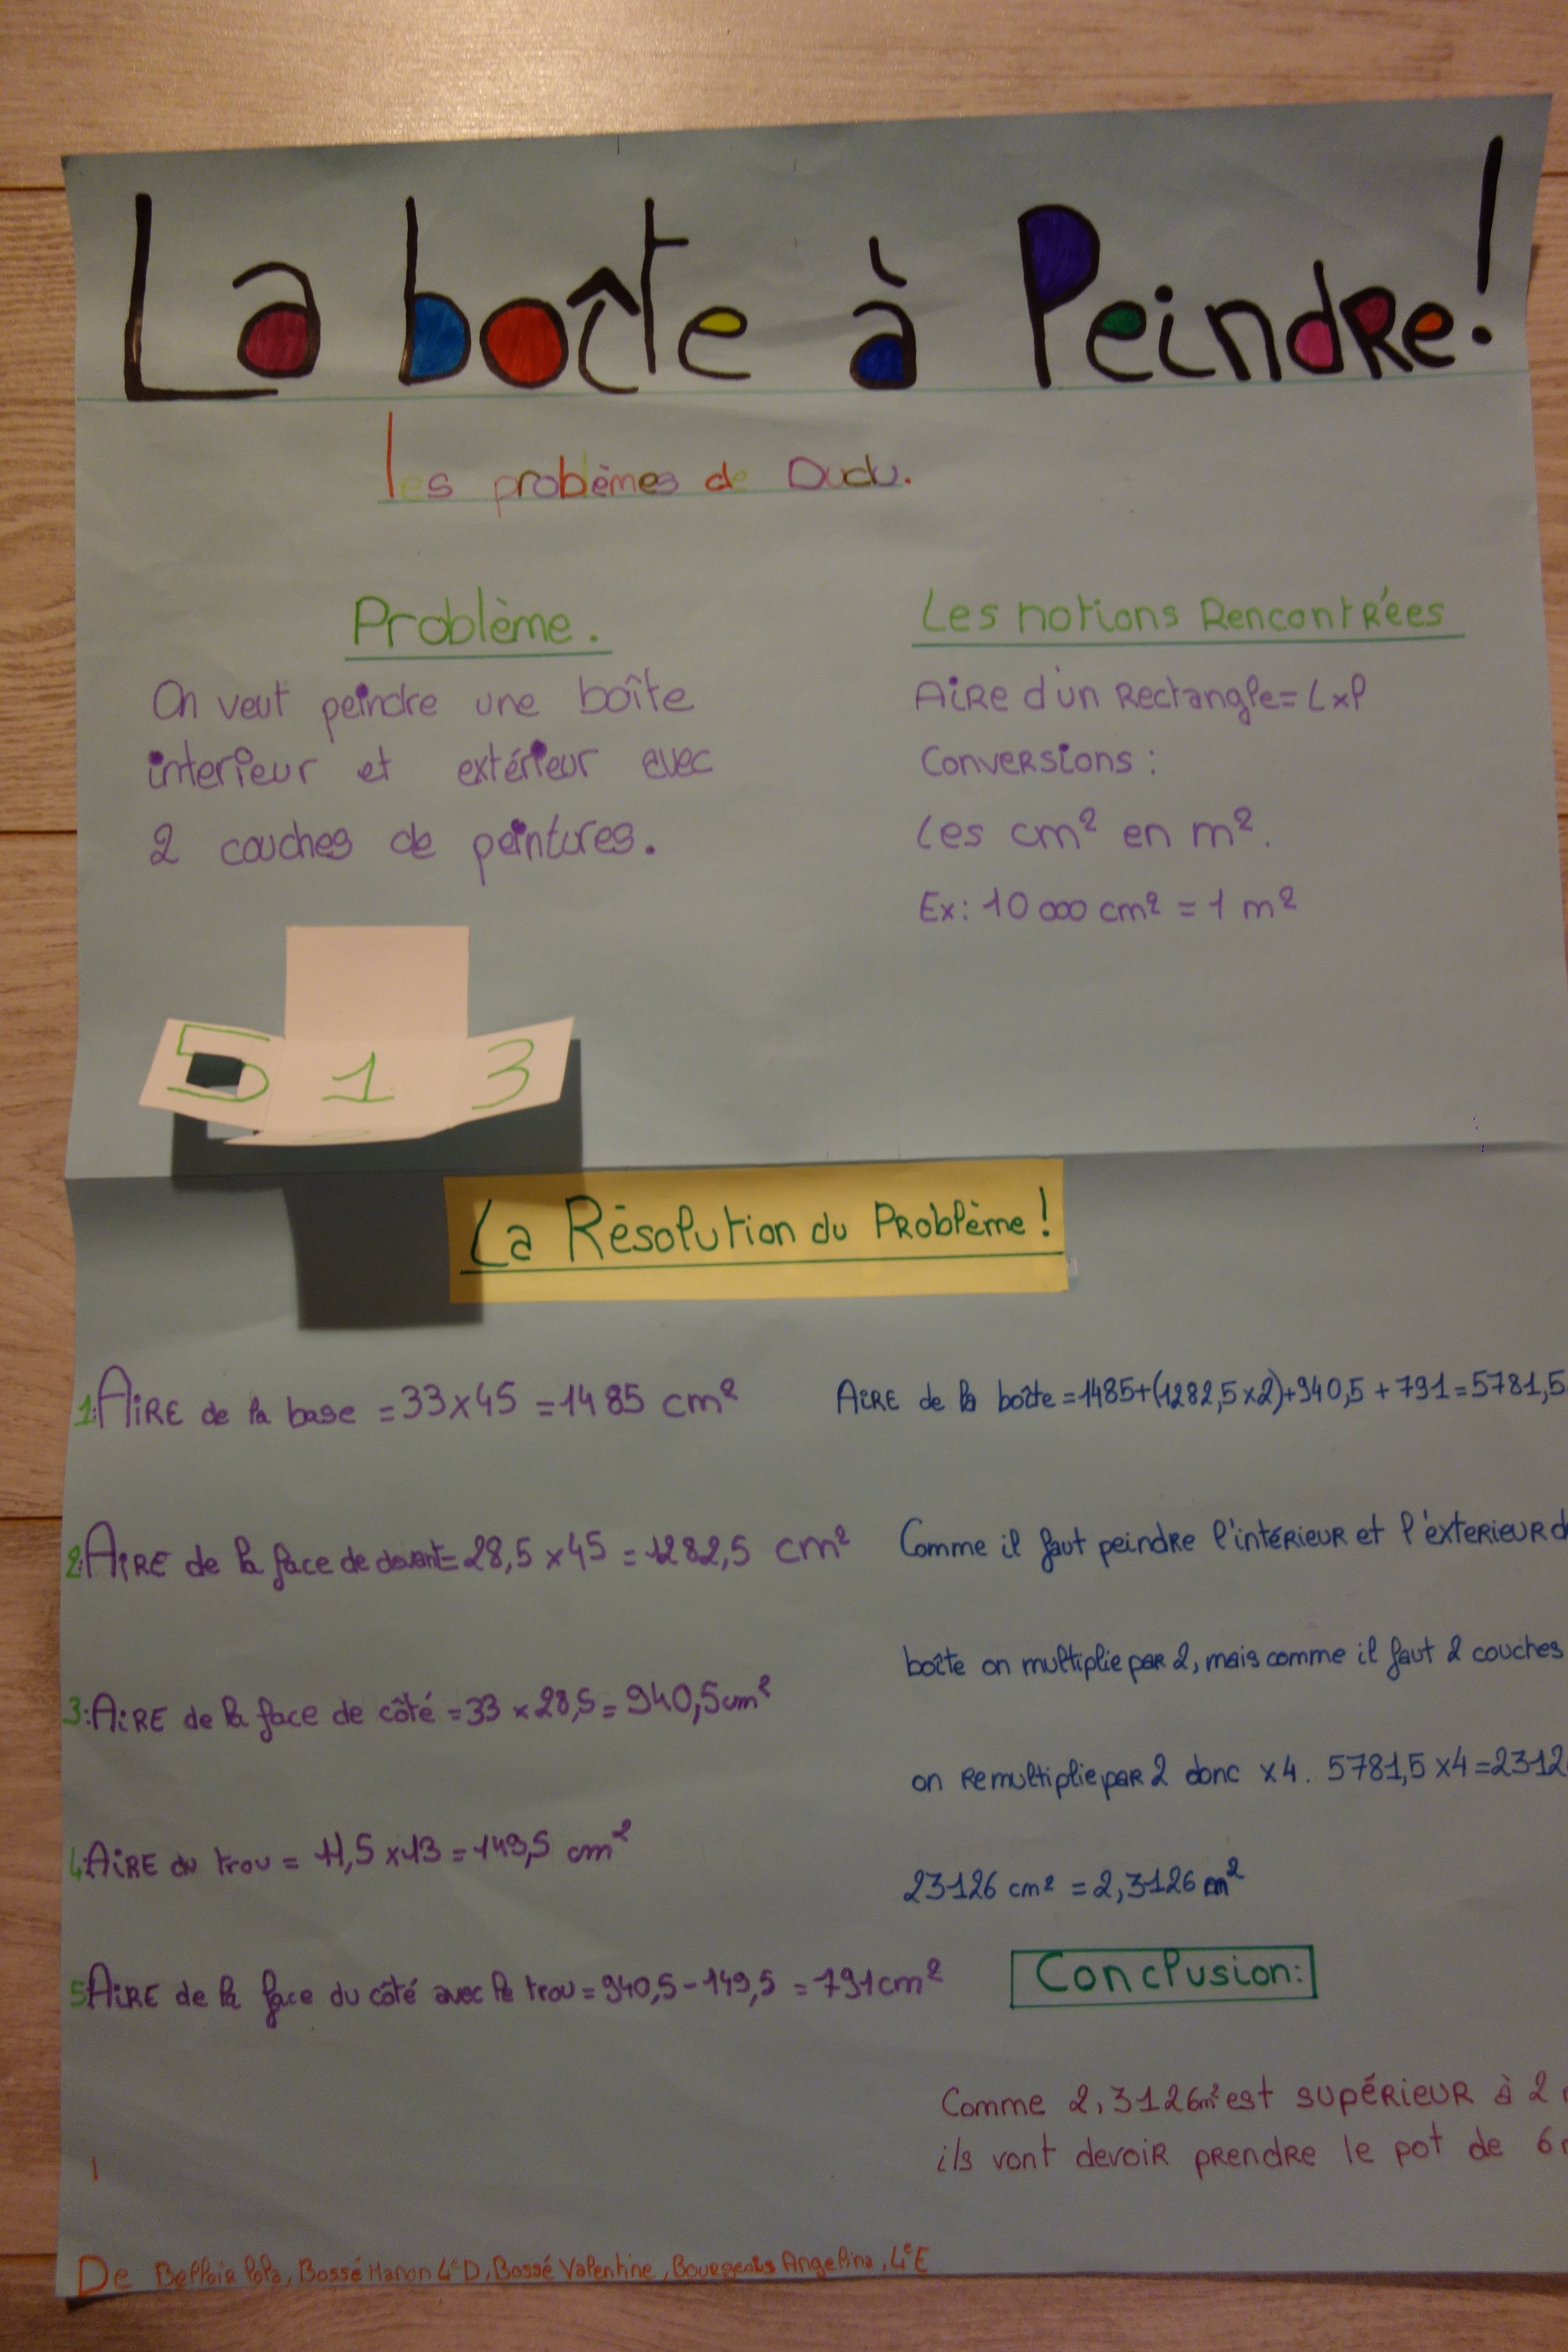 La boîte à Peindre!
les problèmes de Dudu.
Problème.
On veut peindre une boîte
interieur et extérieur avec
2 couches de peintures.
Les notions Rencontrées
Aire d'un Rectangle = L x l
Conversions :
Les cm² en m².
Ex: 10 000 cm² = 1 m²
5 1 3
La Résolution du Problème!
1: Aire de la base = 33 x 45 = 1485 cm²
2: Aire de la face de devant = 28,5 x 45 = 1282,5 cm²
3: Aire de la face de côté = 33 x 28,5 = 940,5 cm²
4 Aire du trou = 11,5 x 13 = 149,5 cm²
5 Aire de la face du côté avec le trou = 940,5 - 149,5 = 791 cm²
Aire de la boîte = 1485 + (1282,5 x 2) + 940,5 + 791 = 5781,5
Comme il faut peindre l'intérieur et l'exterieur d
boîte on multiplie par 2, mais comme il faut 2 couches
on remultiplie par 2 donc x 4. 5781,5 x 4 = 2312
23126 cm² = 2,3126 m²
Conclusion:
Comme 2,3126 m² est supérieur à 2
ils vont devoir prendre le pot de 6
De Bossé Manon 4eD, Bossé Valentine, Bourgeois Angelina, 4eE